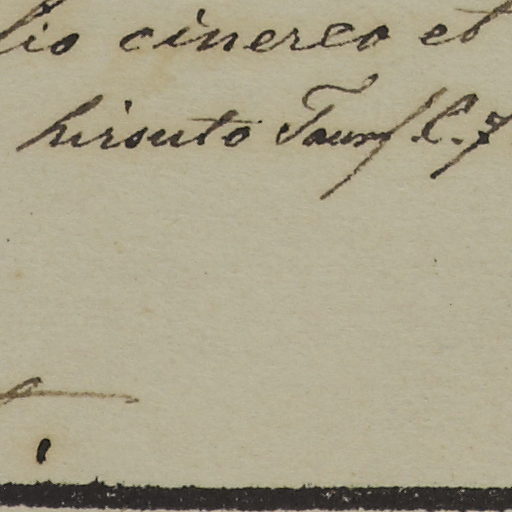 lio cinereo et
hirsuto Tourn C. 7